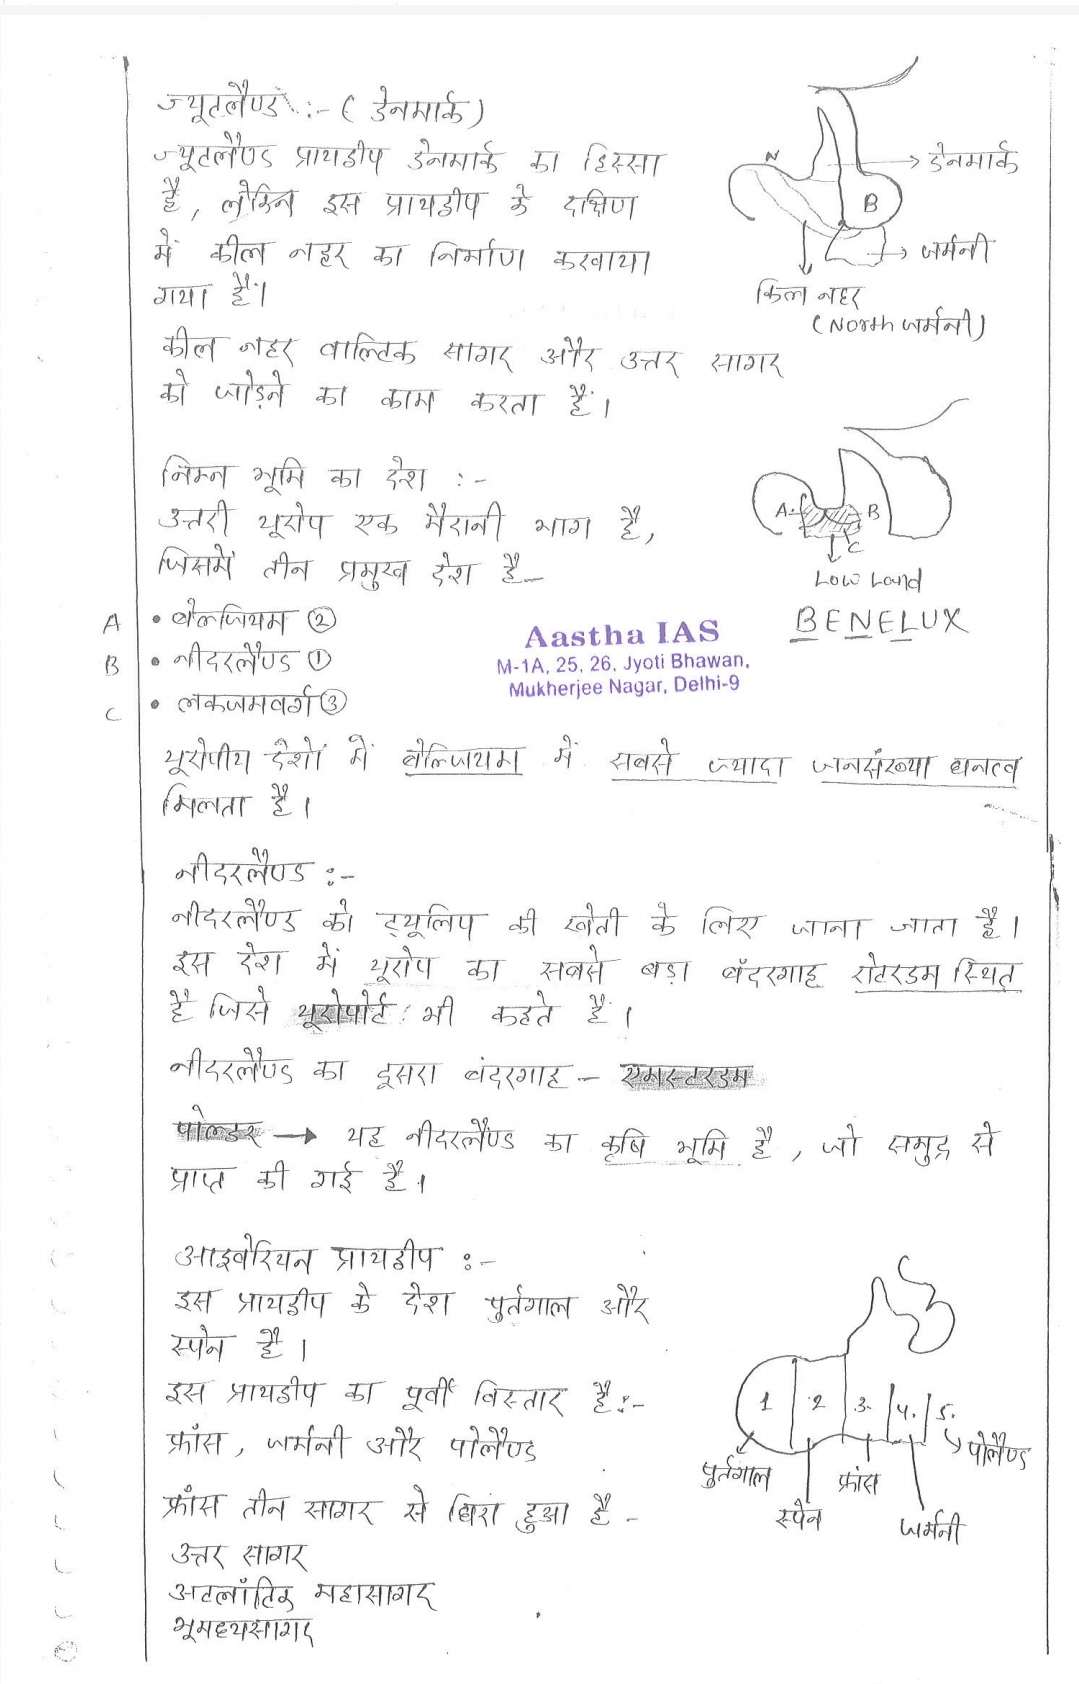 ज्यूटलैण्ड :- ( डेनमार्क )
ज्यूटलैण्ड प्रायद्वीप डेनमार्क का हिस्सा
है, लेकिन इस प्रायद्वीप के दक्षिण
में कील नहर का निर्माण करवाया
गया है।
कील नहर वाल्टिक सागर और उत्तर सागर
को जोड़ने का काम करता है।
N
B
डेनमार्क
जर्मनी
किल नहर
(North जर्मनी)
निम्न भूमि का देश :-
उत्तरी यूरोप एक मैदानी भाग है,
जिसमें तीन प्रमुख देश है-
A • बेल्जियम ②
B • नीदरलैण्ड ①
C • लक्जमवर्ग ③
A
B
C
Low Land
BENELUX
Aastha IAS
M-1A, 25, 26, Jyoti Bhawan,
Mukherjee Nagar, Delhi-9
यूरोपीय देशों में बेल्जियम में सबसे ज्यादा जनसंख्या घनत्व
मिलता है।
नीदरलैण्ड :-
नीदरलैण्ड को ट्यूलिप की खेती के लिए जाना जाता है।
इस देश में यूरोप का सबसे बड़ा बंदरगाह रोटरडम स्थित
है जिसे यूरोपोर्ट भी कहते हैं।
नीदरलैण्ड का दूसरा बंदरगाह - एमस्टरडम
पोल्डर → यह नीदरलैण्ड का कृषि भूमि है, जो समुद्र से
प्राप्त की गई है।
आइवेरियन प्रायद्वीप :-
इस प्रायद्वीप के देश पुर्तगाल और
स्पेन है।
इस प्रायद्वीप का पूर्वी विस्तार है:-
फ्रांस, जर्मनी और पोलैण्ड
फ्रांस तीन सागर से घिरा हुआ है -
उत्तर सागर
अटलांटिक महासागर
भूमध्यसागर
1 2 3. 4. 5.
पुर्तगाल
स्पेन
फ्रांस
जर्मनी
पोलैण्ड